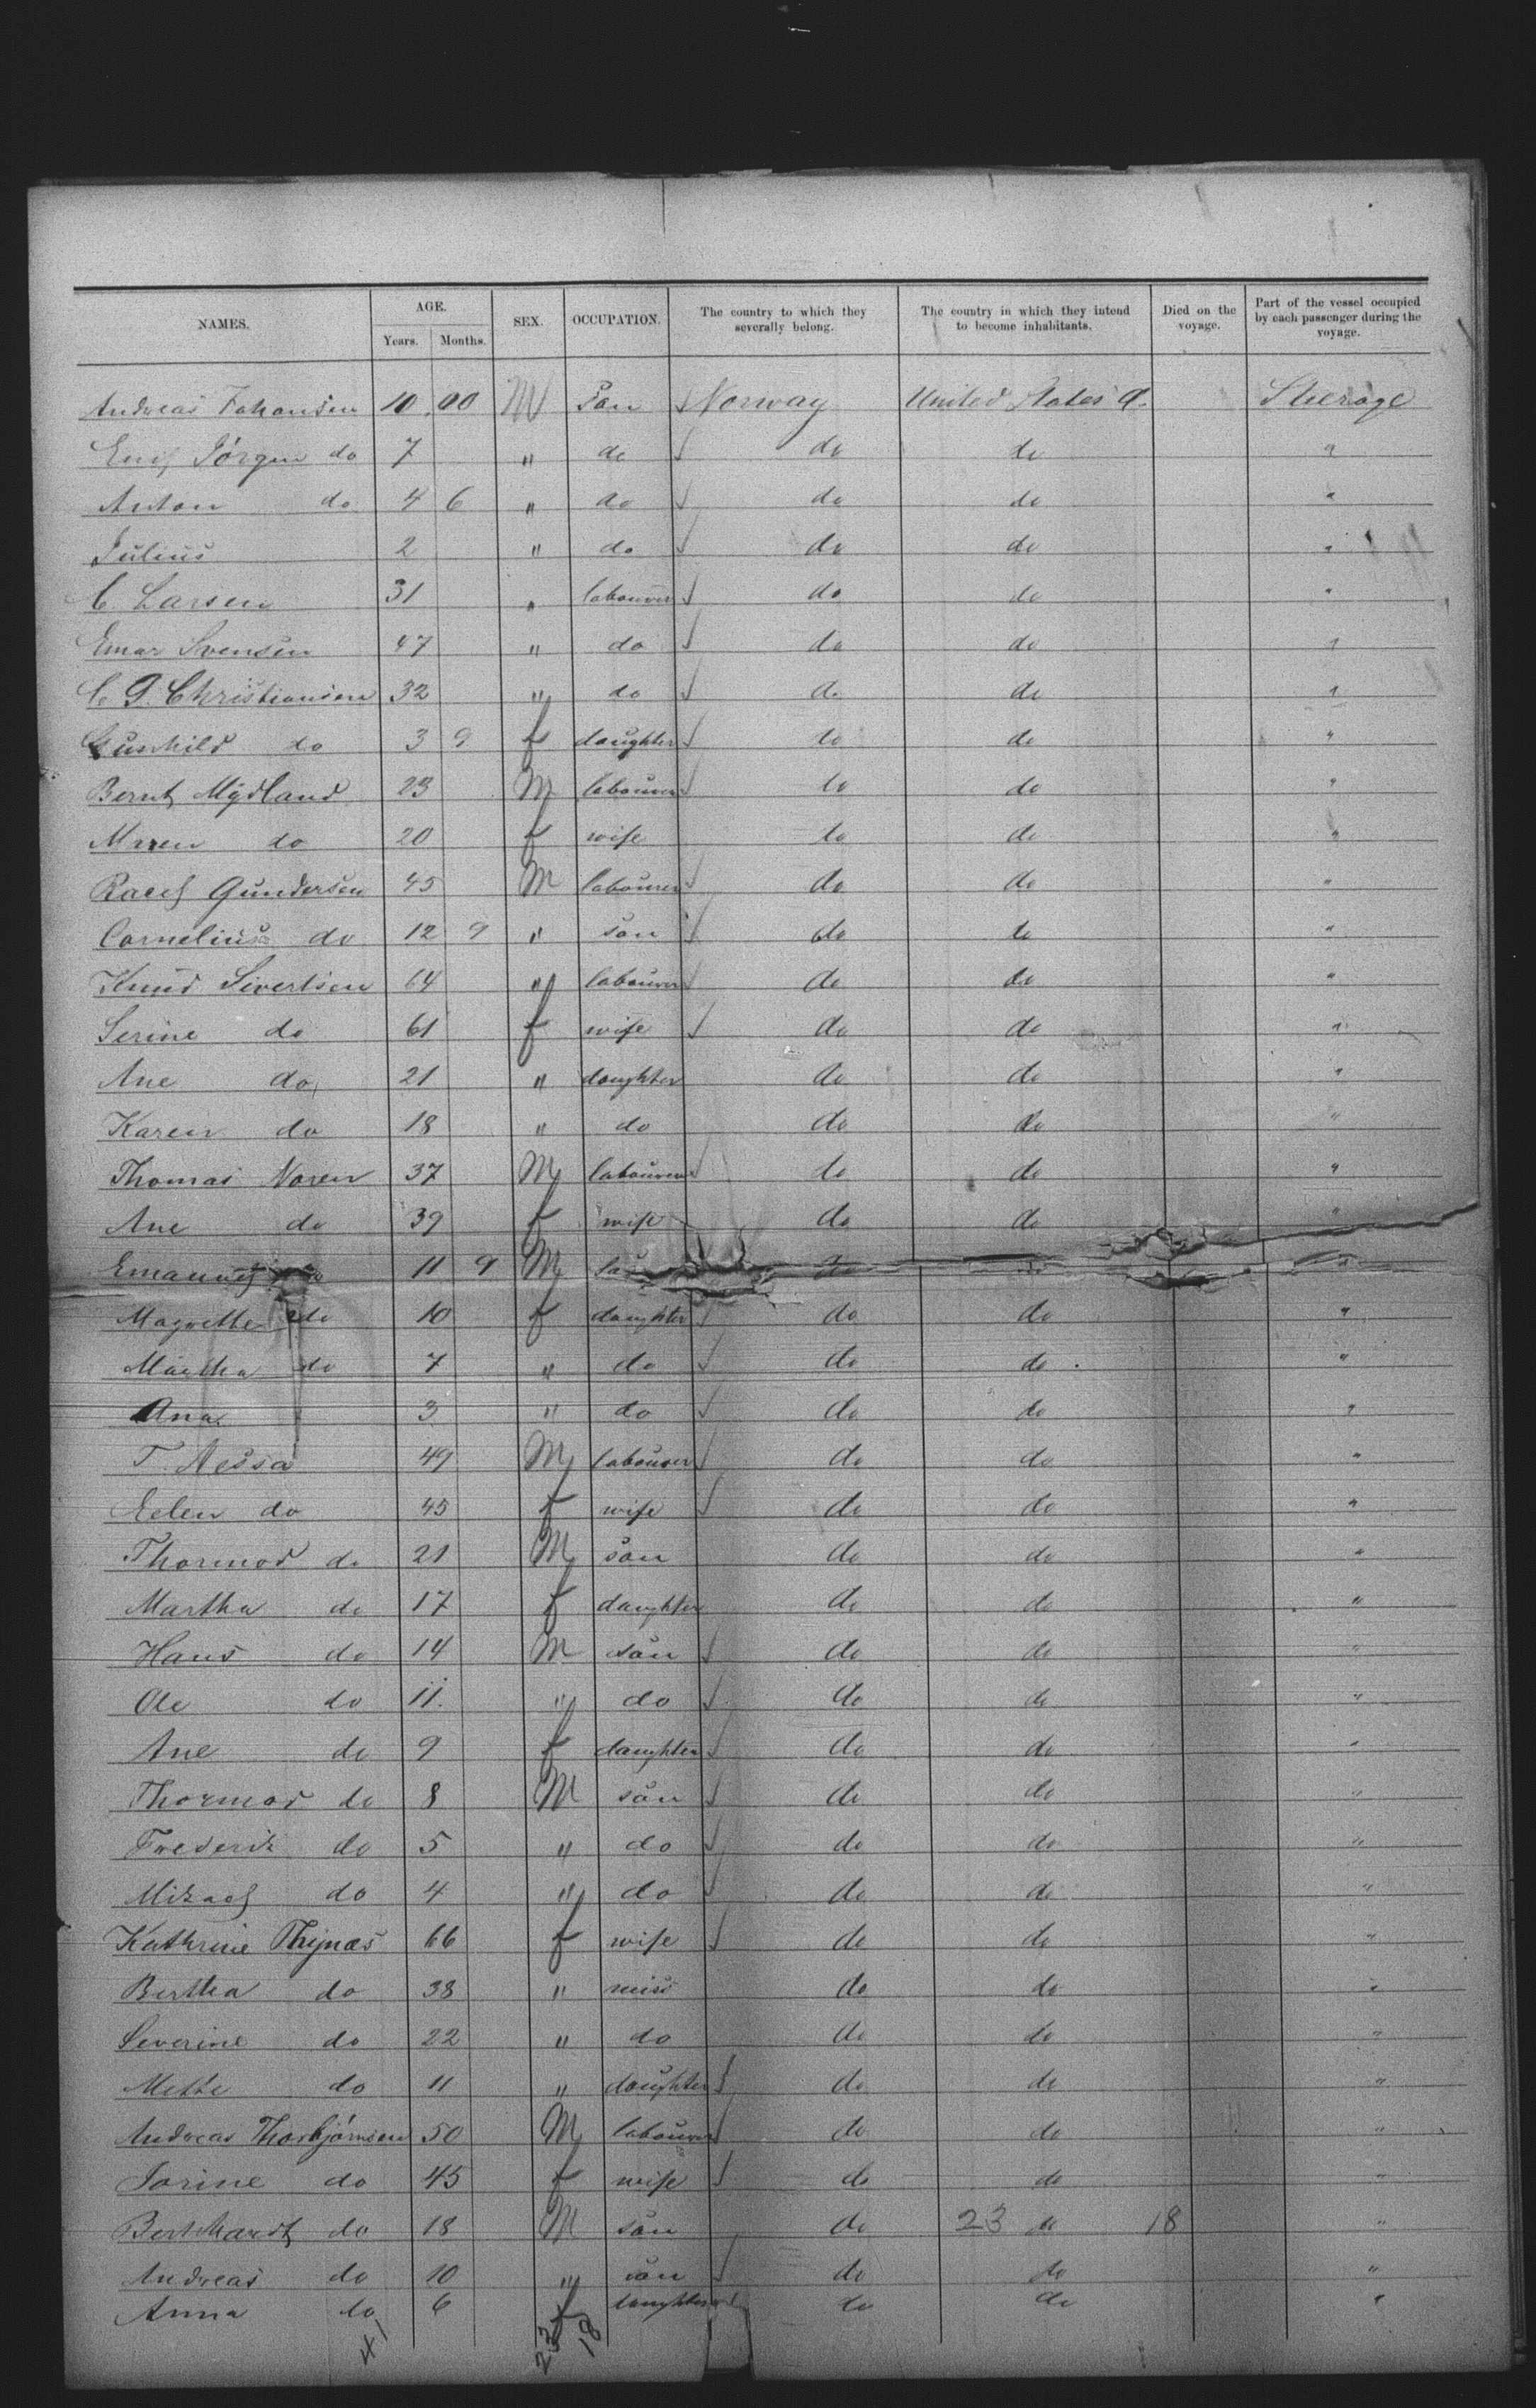 NAMES. AGE. Years. Months. SEX. OCCUPATION. The country to which they severally belong. The country in which they intend to become inhabitants. Died on the voyage. Part of the vessel occupied by each passenger during the voyage.
Andreas Johansen 10 00 M Son Norway United States A. Steerage
Jörgen do 7 " do do do "
Anton do 4 6 " do do do "
Julius 2 " do do do "
C. Larsen 31 " labourer do do "
Einar Svensen 47 " do do do "
C. G. Christiansen 32 " do do do "
Gunhild do 3 9 f daughter do do "
Bernt Mydland 23 M labourer do do "
Maren do 20 f wife do do "
Gundersen 45 M labourer do do "
Cornelius do 12 9 " son do do "
Knud Sivertsen 64 " labourer do do "
Serine do 61 f wife do do "
Ane do 21 " daughter do do "
Karen do 18 " do do do "
Thomas Noren 37 M labourer do do "
Ane do 39 f wife do do "
Emanuel 11 9 M
Magrethe do 10 f daughter do do "
Martha do 7 " do do do "
Ana 3 " do do do "
T. Nessa 49 M labourer do do "
Eelen do 45 f wife do do "
Thormod do 21 M son do do "
Martha do 17 f daughter do do "
Hans do 14 M son do do "
Ole do 11 " do do do "
Ane do 9 f daughter do do "
Thormod do 8 M son do do "
Frederik do 5 " do do do "
Mikael do 4 " do do do "
Kathrine 66 f wife do do "
Bertha do 38 " miss do do "
Severine do 22 " do do do "
Mette do 11 " daughter do do "
Andreas Thorbjörnsen 50 M labourer do do "
Sorine do 45 f wife do do "
Bernhardt do 18 M son do 23 do 18 "
Andreas do 10 " son do do "
Anna do 6 f daughter do do "
41 23 18